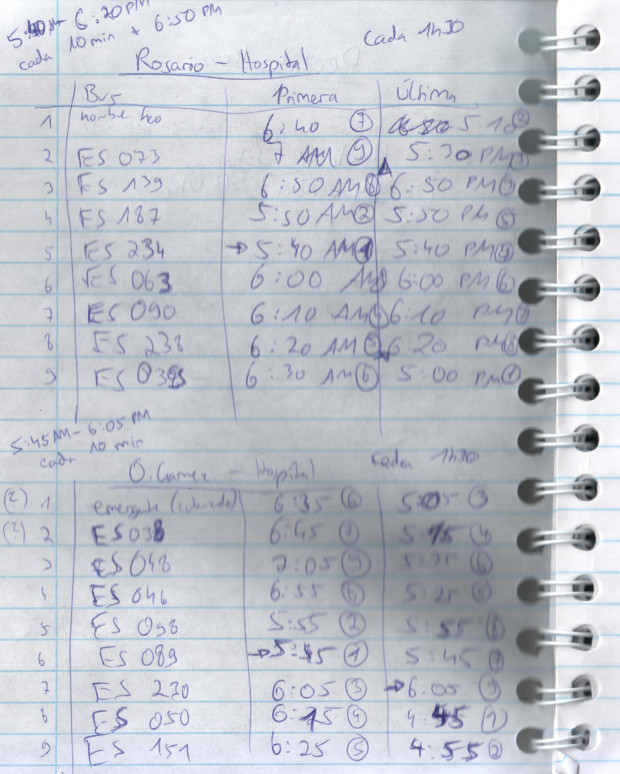 6:20 PM
cada 10 min + 6:50 PM
Cada 1h30
Rosario - Hospital
Bus Primera Última
1 6:40 ⑦ 5:10
2 ES 073 7 AM ⑨ 5:30 PM
3 ES 139 6:50 AM ⑧ 6:50 PM
4 ES 187 5:50 AM ② 5:50 PM ⑤
5 ES 234 → 5:40 AM ① 5:40 PM ④
6 ES 063 6:00 AM 6:00 PM ⑥
7 ES 090 6:10 AM 6:10 PM
8 ES 238 6:20 AM ⑤ 6:20 PM ⑧
9 ES 6:30 AM ⑥ 5:00 PM ①
5:45 AM - 6:05 PM
cada 10 min
O. Gamez - Hospital
Cada 1h30
(?) 1 6:35 ⑥ 5:05 ③
(?) 2 ES 038 6:45 5:15 ④
3 ES 048 7:05 ⑨
4 ES 046 6:55 5:25 ⑤
5 ES 098 5:55 ② 5:55
6 ES 089 → 5:45 ① 5:45
7 ES 230 6:05 ③ → 6:05 ⑨
8 ES 050 6:15 ④ 4:45 ①
9 ES 151 6:25 ⑤ 4:55 ②